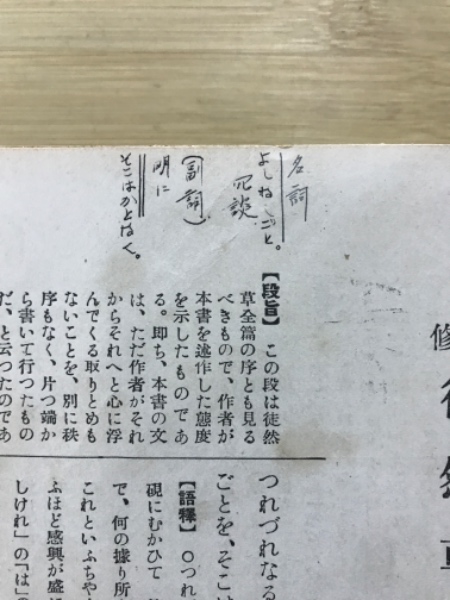 名詞
よしなしごと。
冗談
（副詞）
明に
そこはかとなく。
【段旨】　この段は徒然
草全篇の序とも見る
べきもので、作者が
本書を述作した態度
を示したものであ
る。即ち、本書の文
は、ただ作者がそれ
からそれへと心に浮
んでくる取りとめも
ないことを、別に秩
序もなく、片つ端か
ら書いて行つたもの
だ、と云つたのであ
つれづれなる
ごとを、そこは
【語釋】　○つれ
硯にむかひて
で、何の據り所
これといふちや
ふほど感興が盛
しけれ」の「は」の